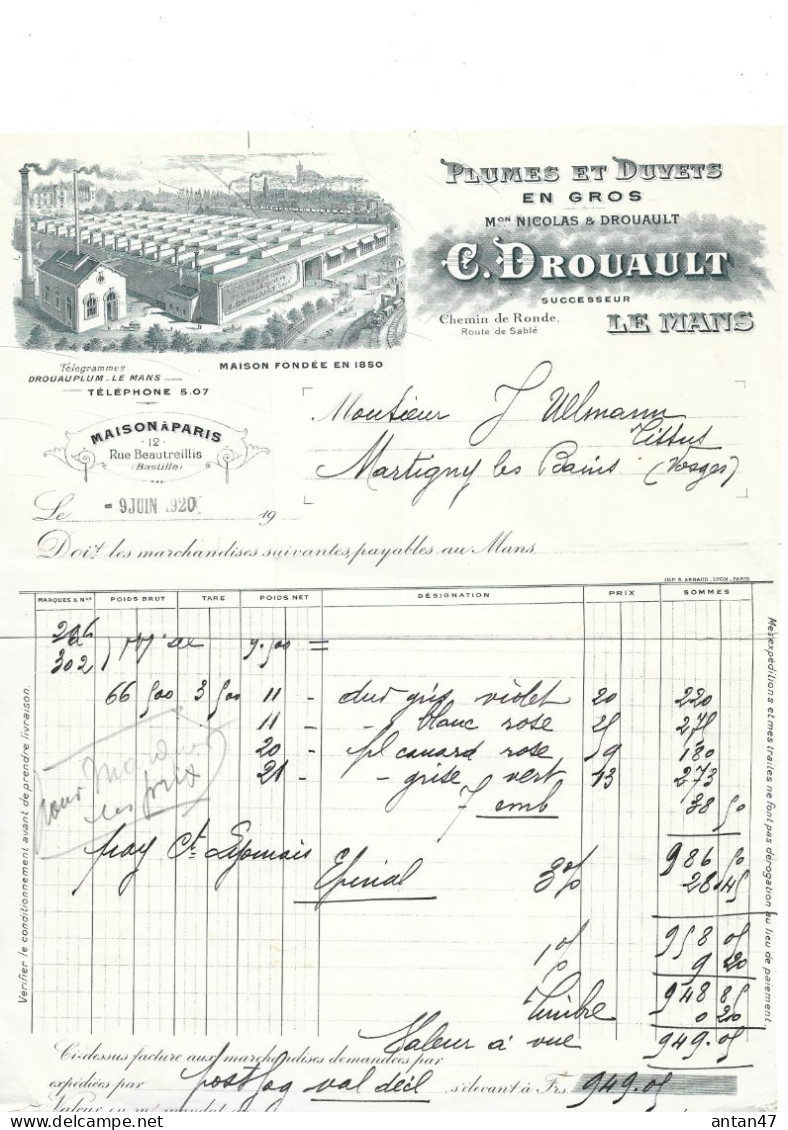 PLUMES ET DUVETS
EN GROS
MON NICOLAS & DROUAULT
C. DROUAULT
SUCCESSEUR
Chemin de Ronde,
Route de Sablé
LE MANS
MAISON FONDÉE EN 1850
Télégrammes
DROUAUPLUM_LE MANS
TÉLÉPHONE 5.07
MAISON À PARIS
12
Rue Beautreillis
(Bastille)
Monsieur J Ullmann
Tissus
Martigny les Bains (Vosges)
Le - 9 JUIN 1920 19
Doit les marchandises suivantes, payables au Mans
IMP. B. ARNAUD. LYON_PARIS
MARQUES & Nos POIDS BRUT TARE POIDS NET DÉSIGNATION PRIX SOMMES
302
66 500 3 500 11 - duv gris violet 20 220
11 - - blanc rose 25 275
20 - pl canard rose 9 180
21 - grise vert 13 273
7 emb 38 50
pour Marquer
les prix
pay Ct Lyonnais
Epinal
986 50
3% 28.45
958 05
1% 9 20
948 85
Timbre 0 20
Valeur à vue 949.05
Ci-dessus facture aux marchandises demandées par
expédiées par s'élevant à Frs 949.05
Valeur en m/ mandat
Vérifier le conditionnement avant de prendre livraison.
Mes expéditions et mes traites ne font pas dérogation au lieu de paiement
antan47